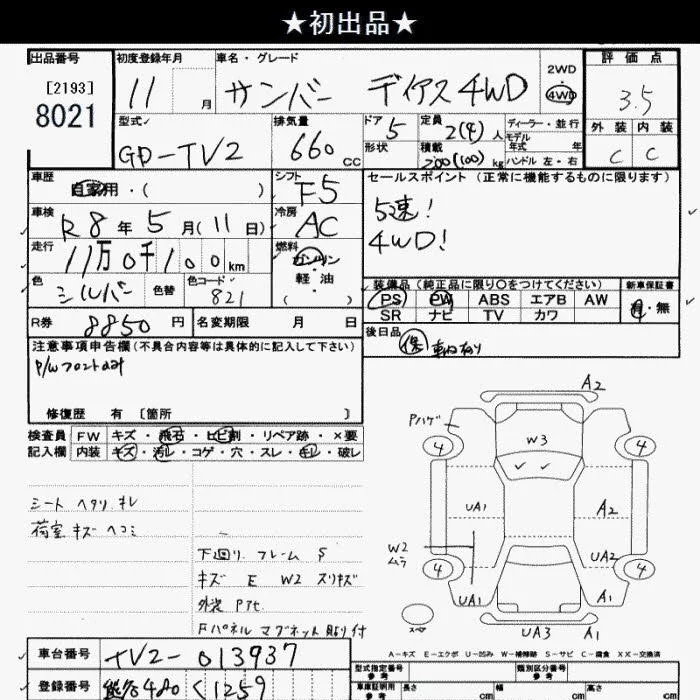 ★初出品★
出品番号
[2193]
8021
初度登録年月
11 月
車名・グレード
サンバー ディアス 4WD
2WD
・
4WD
評価点
3.5
外装 内装
C C
型式
GD-TV2
排気量
660 CC
ドア 5
形状
定員 2(4)人
積載 200(100)kg
ディーラー・並行
モデル
年式 年
ハンドル 左・右
車歴
自家用・( )
シフト
F5
車検
R8年5月(11日)
冷房
AC
走行
11万0千100km
燃料
ガソリン
軽・油
( )
色
シルバー
色替
色コード
821
R券 8850円
名変期限 月 日
セールスポイント(正常に機能するものに限ります)
5速!
4WD!
装備品(純正品に限り○をつけてください)
PS PW ABS エアB AW
SR ナビ TV カワ
新車保証書
有・無
後日品
保
注意事項申告欄(不具合内容等は具体的に記入して下さい)
P/Wフロントのみ
修復歴 有 [箇所 ]
検査員 FW キズ・飛石・ヒビ割・リペア跡・×要
記入欄 内装 キズ・汚レ・コゲ・穴・スレ・キレ・破レ
シート ヘタリ キレ
荷室 キズ ヘコミ
下廻り フレーム S
キズ E W2 スリキズ
外装 Pアセ
Fパネル マグネット貼り付
A2
Pハゲ
4 4
W3
UA1 A2
W2
ムラ
UA2
4 4
UA1 A1
スペア
UA3 A1
A-キズ E-エクボ U-凹み W-補修跡 S-サビ C-腐食 XX-交換済
車台番号 TV2-013937
登録番号 熊谷480 く1259
型式指定番号
参考
類別区分番号
参考
車庫証明用
参考
長さ cm
幅 cm
高さ cm